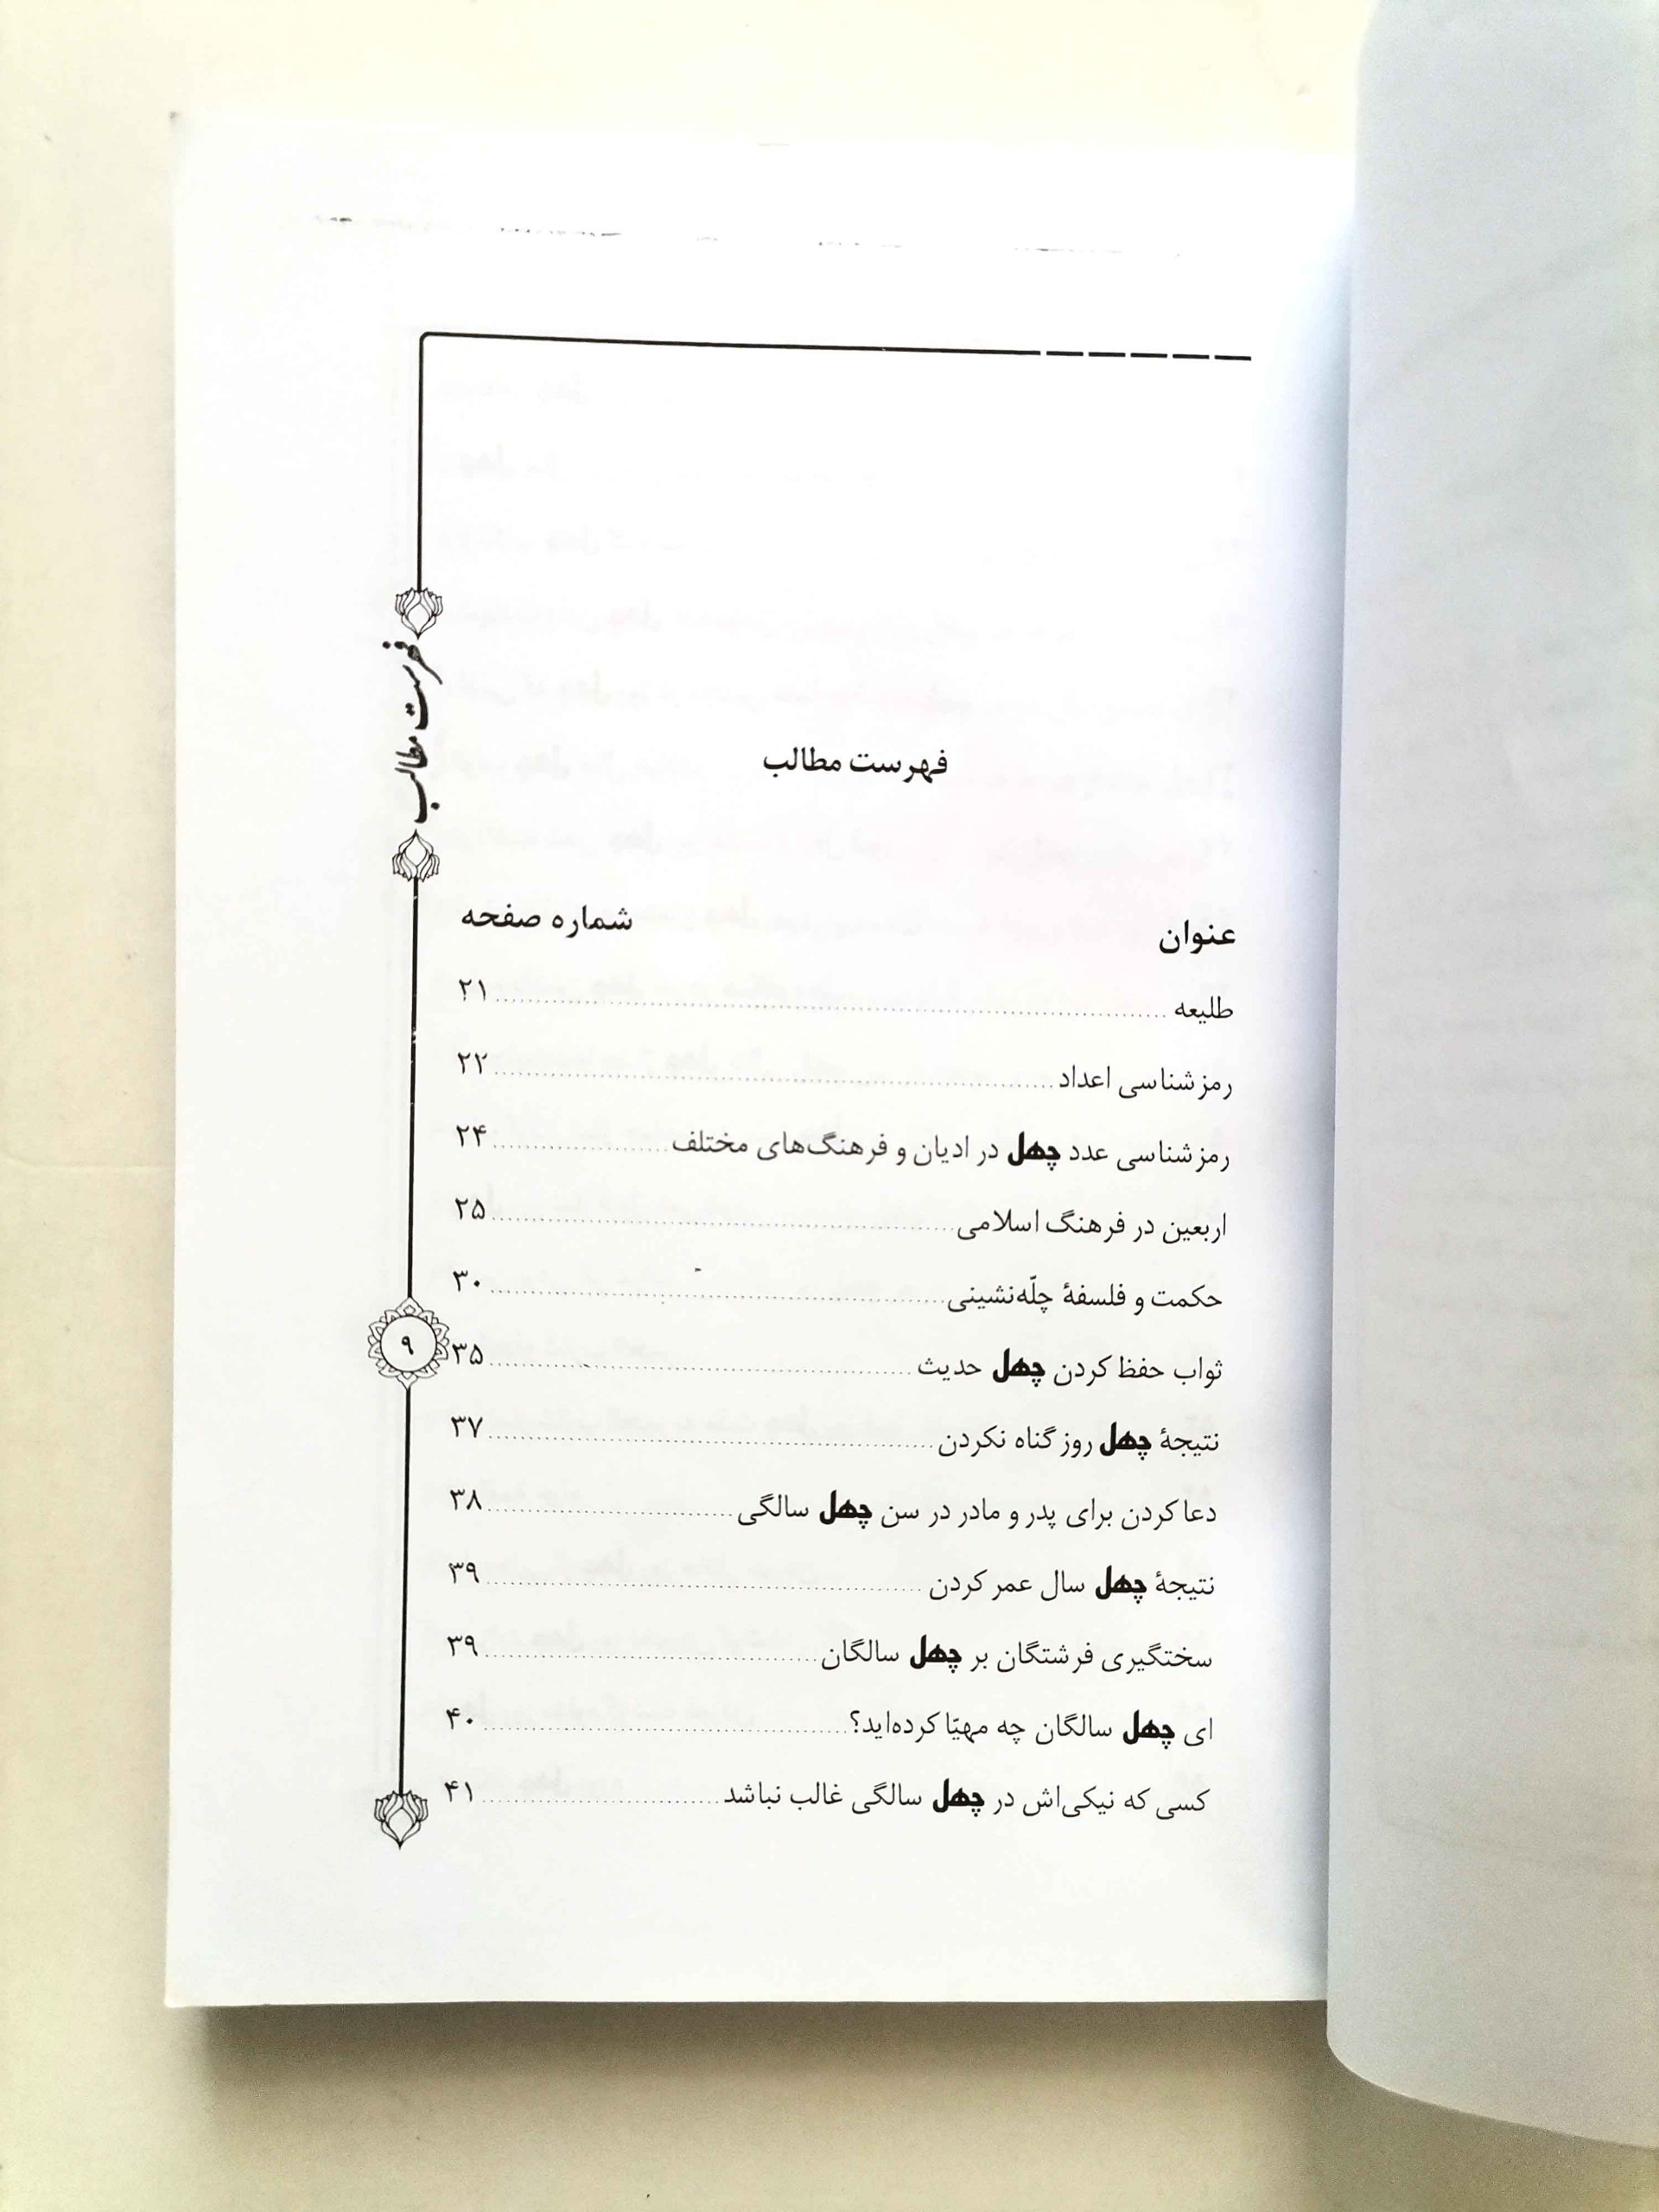 فهرست مطالب
فهرست مطالب
عنوان شماره صفحه
طلیعه ........ ۲۱
رمزشناسی اعداد ........ ۲۲
رمزشناسی عدد چهل در ادیان و فرهنگ‌های مختلف ........ ۲۴
اربعین در فرهنگ اسلامی ........ ۲۵
حکمت و فلسفهٔ چلّه‌نشینی ........ ۳۰
ثواب حفظ کردن چهل حدیث ........ ۳۵
نتیجهٔ چهل روز گناه نکردن ........ ۳۷
دعا کردن برای پدر و مادر در سن چهل سالگی ........ ۳۸
نتیجهٔ چهل سال عمر کردن ........ ۳۹
سختگیری فرشتگان بر چهل سالگان ........ ۳۹
ای چهل سالگان چه مهیّا کرده‌اید؟ ........ ۴۰
کسی که نیکی‌اش در چهل سالگی غالب نباشد ........ ۴۱
۹